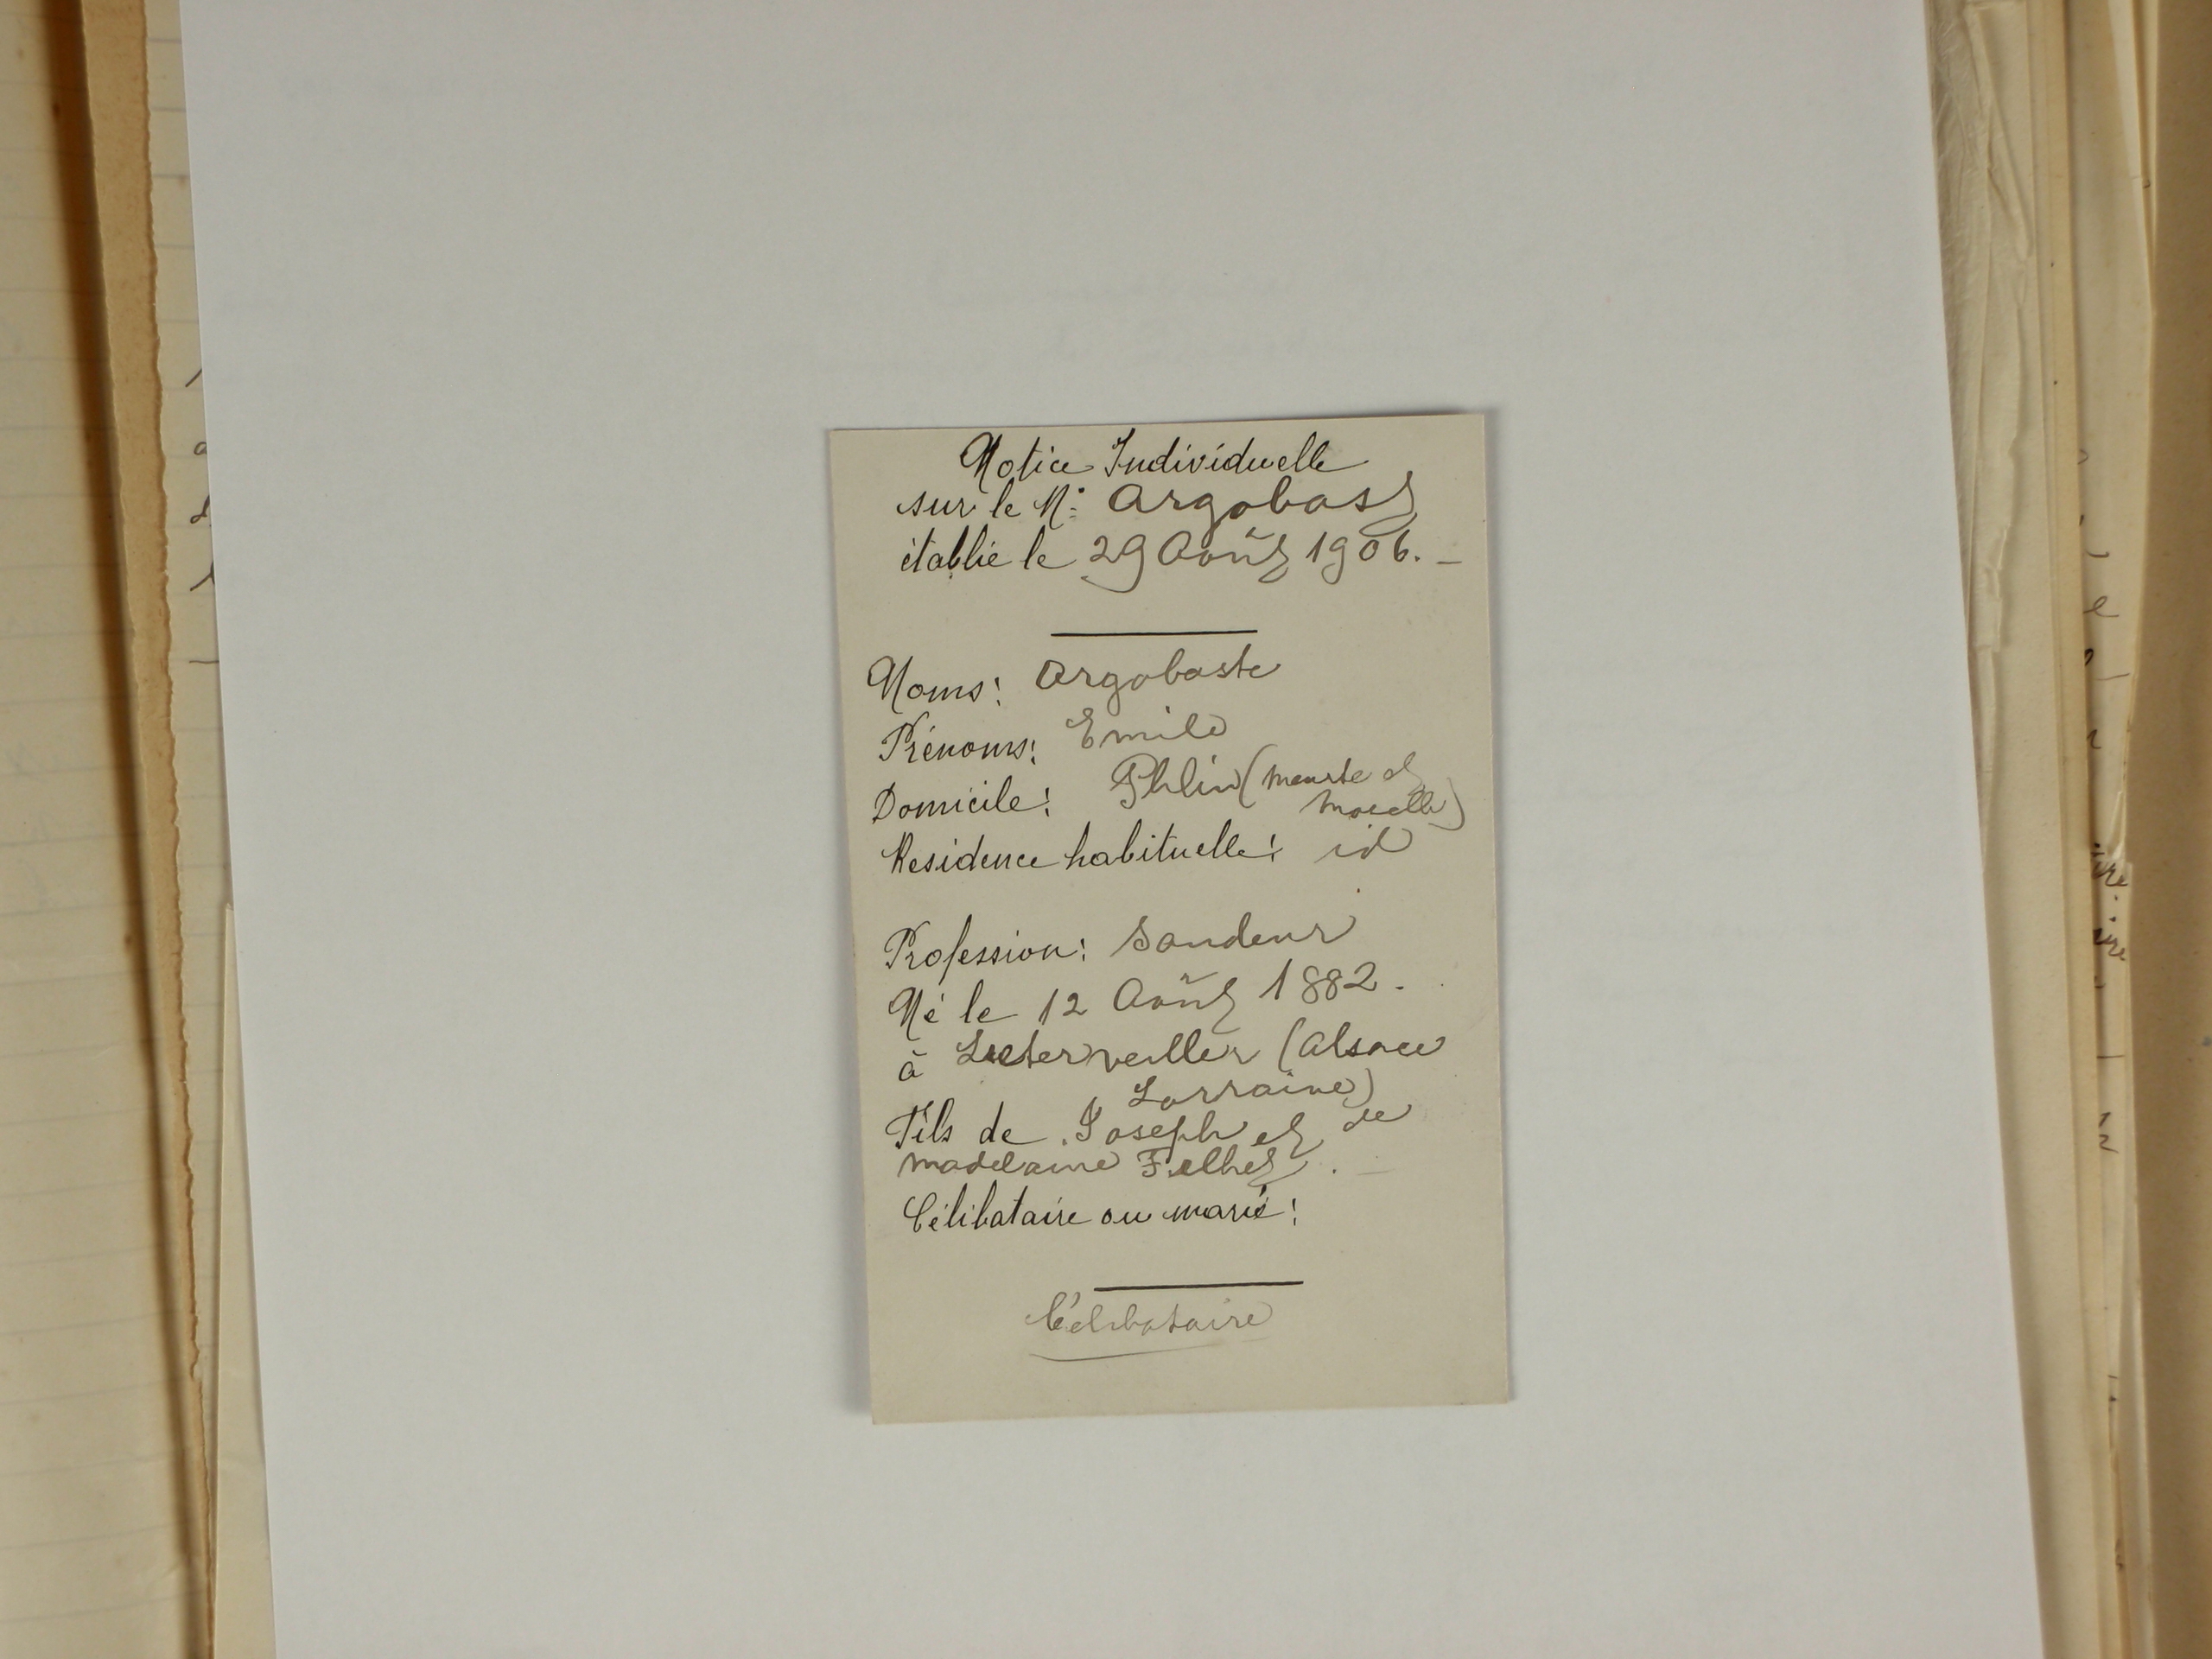 Notice Individuelle
sur le Nᵉ Argobast
établie le 29 Août 1906. —
Noms: Argobaste
Prénoms: Emile
Domicile: (Meurthe et
Moselle)
Residence habituelle: id
Profession: Soudeur
Né le 12 Août 1882.
à (Alsace
Lorraine)
Fils de Joseph et de
Madelaine
Célibataire ou marié:
Célibataire